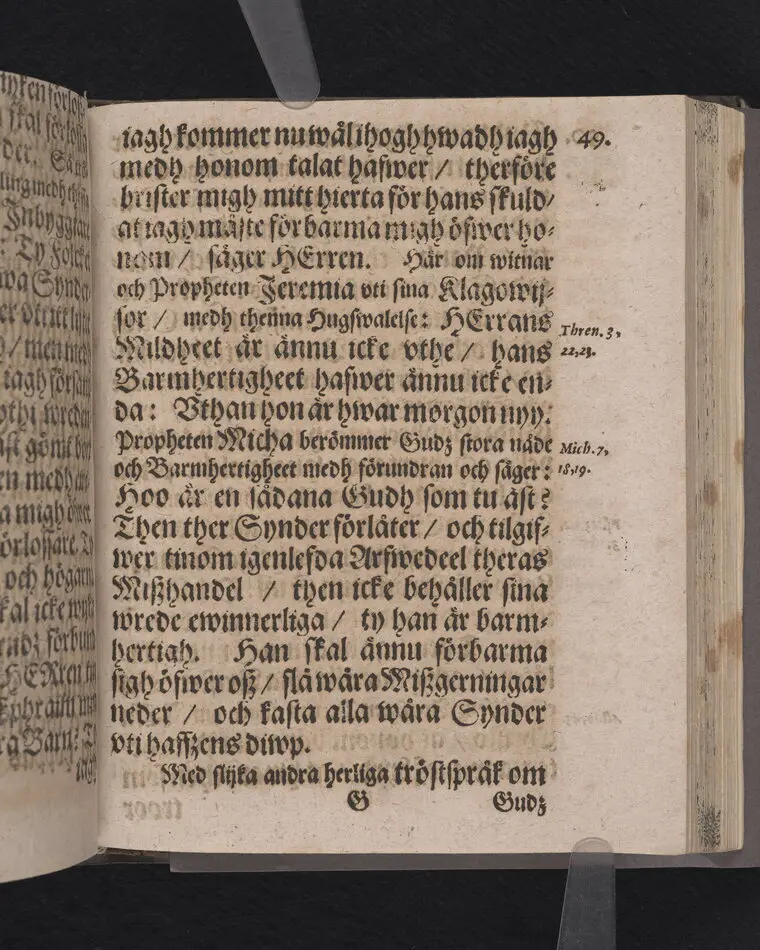 49.
iagh kommer nu wäl ihogh hwadh iagh
medh honom talat hafwer / therföre
brister migh mitt hierta för hans skuld/
at iagh måste förbarma migh öfwer ho-
nom / säger HErren. Här om witnar
och Propheten Jeremia vti sina Klagowij-
sor / medh thenna Hugswalelse: HErrans
Mildheet är ännu icke vthe / hans
Barmhertigheet hafwer ännu icke en-
da: Vthan hon är hwar morgon nyy.
Propheten Micha berömmer Gudz stora nåde
och Barmhertigheet medh förundran och säger:
Hoo är en sådana Gudh som tu äst?
Then ther Synder förlåter / och tilgif-
wer tinom igenlefda Arfwedeel theras
Mißhandel / then icke behåller sina
wrede ewinnerliga / ty han är barm-
hertigh. Han skal ännu förbarma
sigh öfwer oß / slå wåra Mißgerningar
neder / och kasta alla wåra Synder
vti haffzens diwp.
Med slijka andra herliga tröstspråk om
G Gudz
Thren. 3,
22,23.
Mich. 7,
18,19.